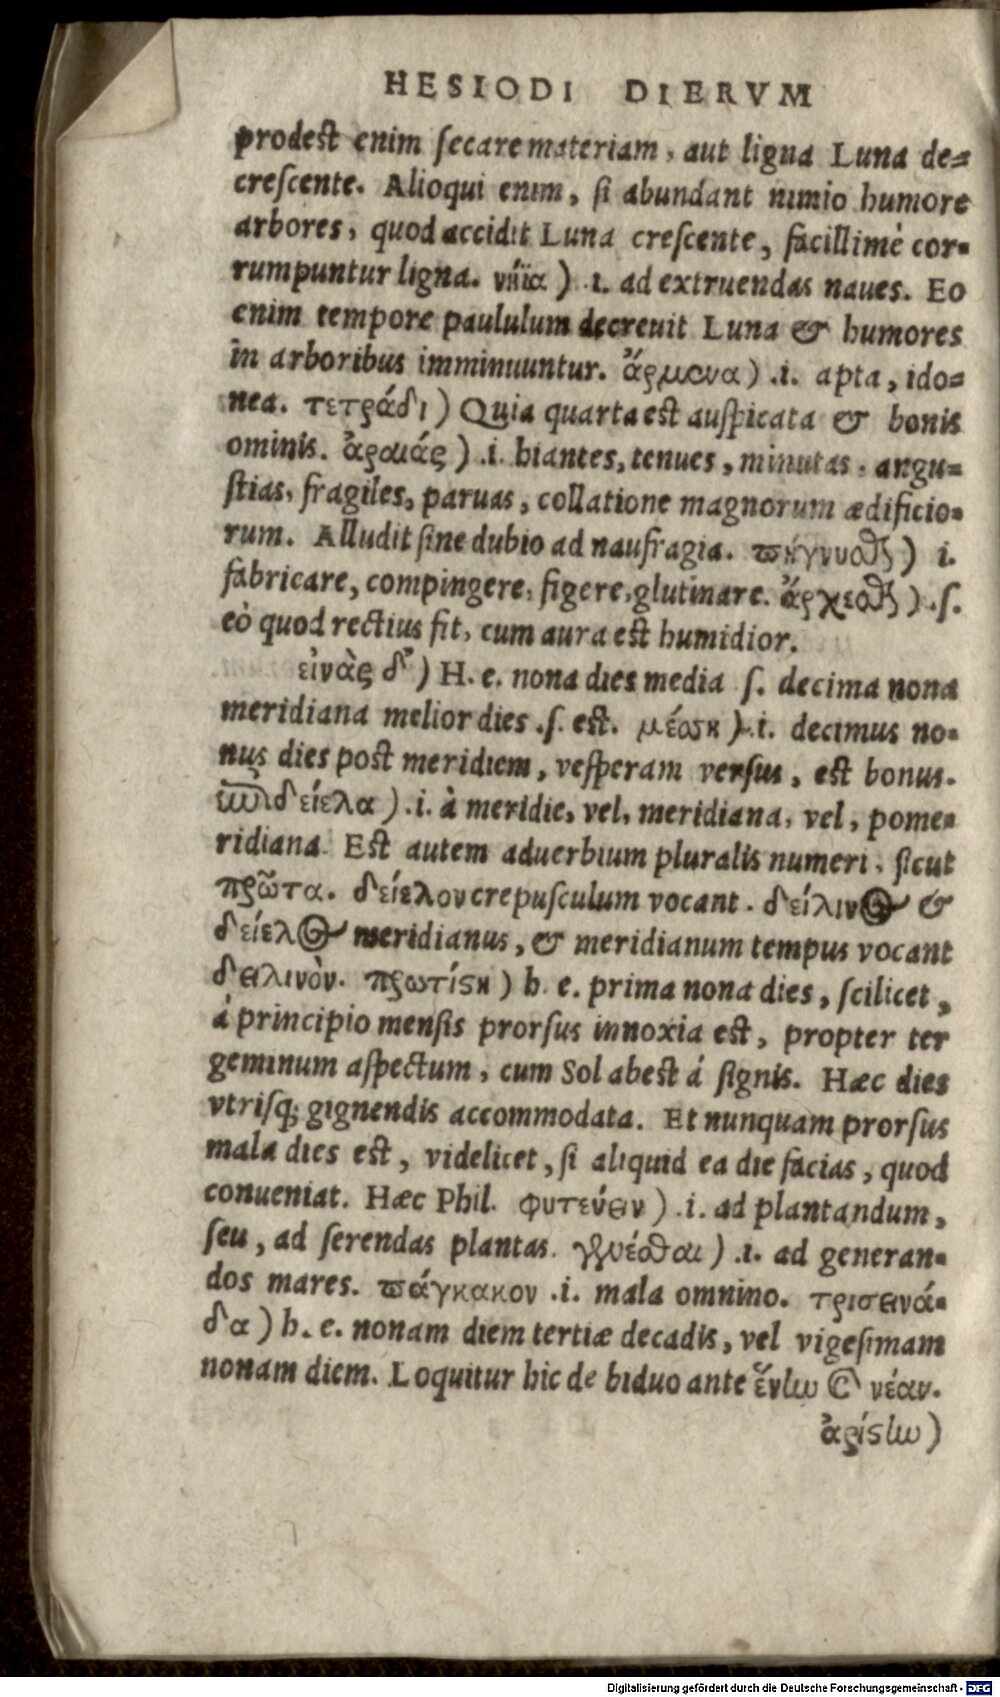 HESIODI DIERVM
prodest enim ſecare materiam, aut ligna Luna de=
creſcente. Alioqui enim, ſi abundant nimio humore
arbores, quod accidit Luna creſcente, facillimè cor=
rumpuntur ligna. νήϊα ) .i. ad extruendas naues. Eo
enim tempore paululum decreuit Luna & humores
in arboribus imminuuntur. ἄρμενα) .i. apta, ido=
nea. τετράδι) Quia quarta est auſpicata & bonis
ominis. ἀραιάς ) .i. hiantes, tenues, minutas, angu=
ſtias, fragiles, paruas, collatione magnorum ædificio=
rum. Alludit ſine dubio ad naufragia. πήγνυσθαι) i.
fabricare, compingere, figere, glutinare. ἄρχεσθαι) .ſ.
eò quod rectius fit, cum aura est humidior.
εἰνὰς δ') H. e. nona dies media ſ. decima nona
meridiana melior dies .ſ. est. μέσση ) .i. decimus no=
nus dies post meridiem, veſperam verſus, est bonus.
ὑπὸ δείελα) .i. à meridie, vel, meridiana, vel, pome=
ridiana. Est autem aduerbium pluralis numeri, ſicut
πρῶτα. δείελον crepuſculum vocant. δείλινος &
δείελος meridianus, & meridianum tempus vocant
δειλινὸν. πρωτίστη) h. e. prima nona dies, ſcilicet,
á principio menſis prorſus innoxia est, propter ter
geminum aſpectum, cum Sol abest á ſignis. Hæc dies
vtriſq; gignendis accommodata. Et nunquam prorſus
mala dies est, videlicet, ſi aliquid ea die facias, quod
conueniat. Hæc Phil. φυτεύειν) .i. ad plantandum,
ſeu, ad ſerendas plantas. γενέσθαι) .i. ad generan=
dos mares. πάγκακον .i. mala omnino. τρισεινά=
δα) h. e. nonam diem tertiæ decadis, vel vigeſimam
nonam diem. Loquitur hic de biduo ante ἕνην καὶ νέαν.
ἀρίστην)
Digitalisierung gefördert durch die Deutsche Forschungsgemeinschaft - DFG